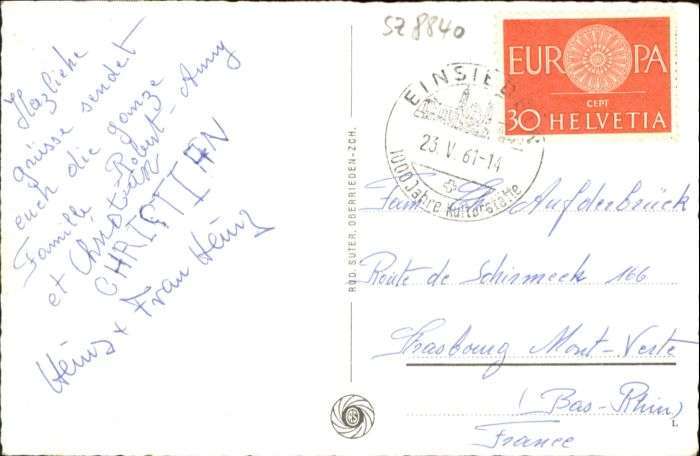 Herzliche
grüsse sendet
euch die ganze
Famille Robert-Anny
et Christian
CHRISTIAN
Heinz + Frau Heinz
RUD. SUTER, OBERRIEDEN-ZCH.
SZ 8840
EUROPA
CEPT
30 HELVETIA
EINSIEDELN
23.V.61-14
1000 Jahre Kulturstätte
Fam. Aufderbrück
Route de Schirmeck 166
Strasbourg Mont-Veste
(Bas-Rhin)
France
L